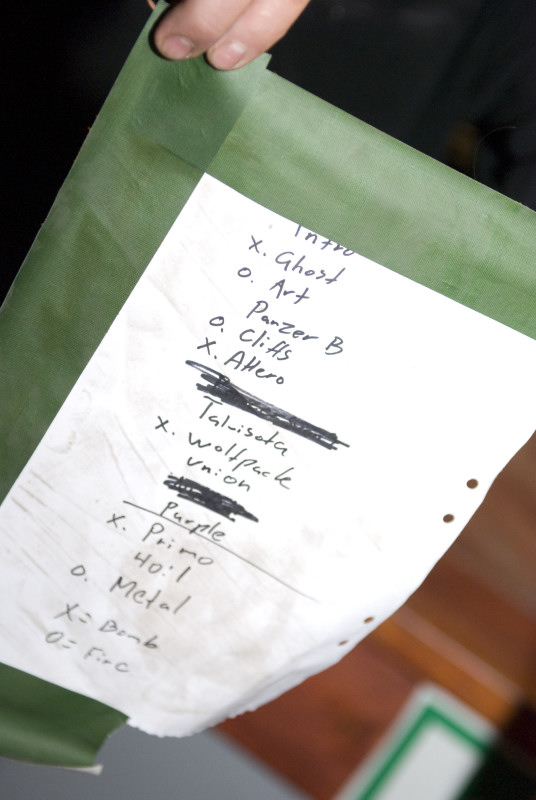 Intro
X. Ghost
O. Art
Panzer B
O. Cliffs
X. Attero
Talvisota
X. Wolfpack
Union
Purple
X. Primo
40:1
O. Metal
X = Bomb
O = Fire